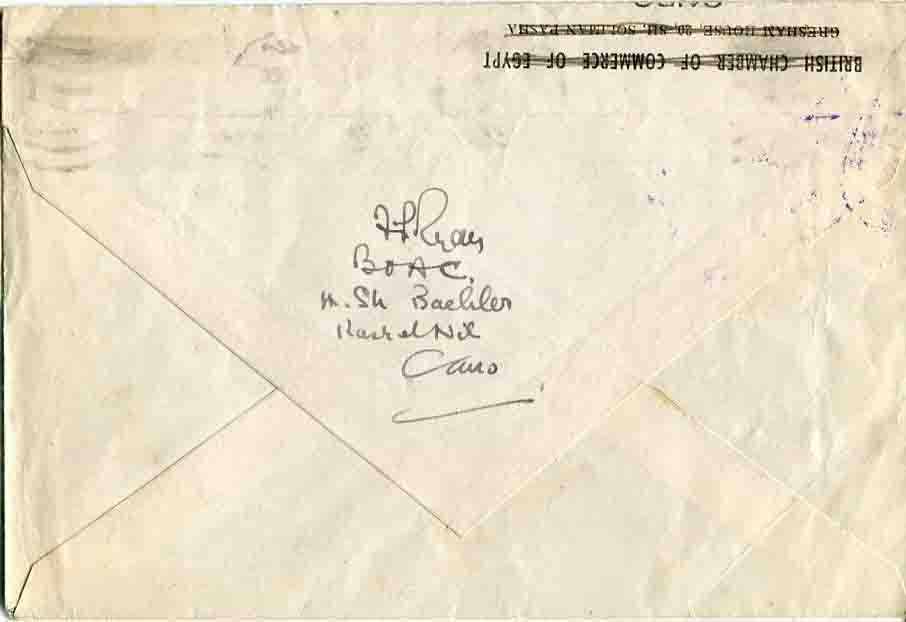 BRITISH CHAMBER OF COMMERCE OF EGYPT
GRESHAM HOUSE, 20, SH. SOLIMAN PASHA
CAIRO
Ryan
BOAC.
Sh Baehler
Kasr el Nil
Cairo